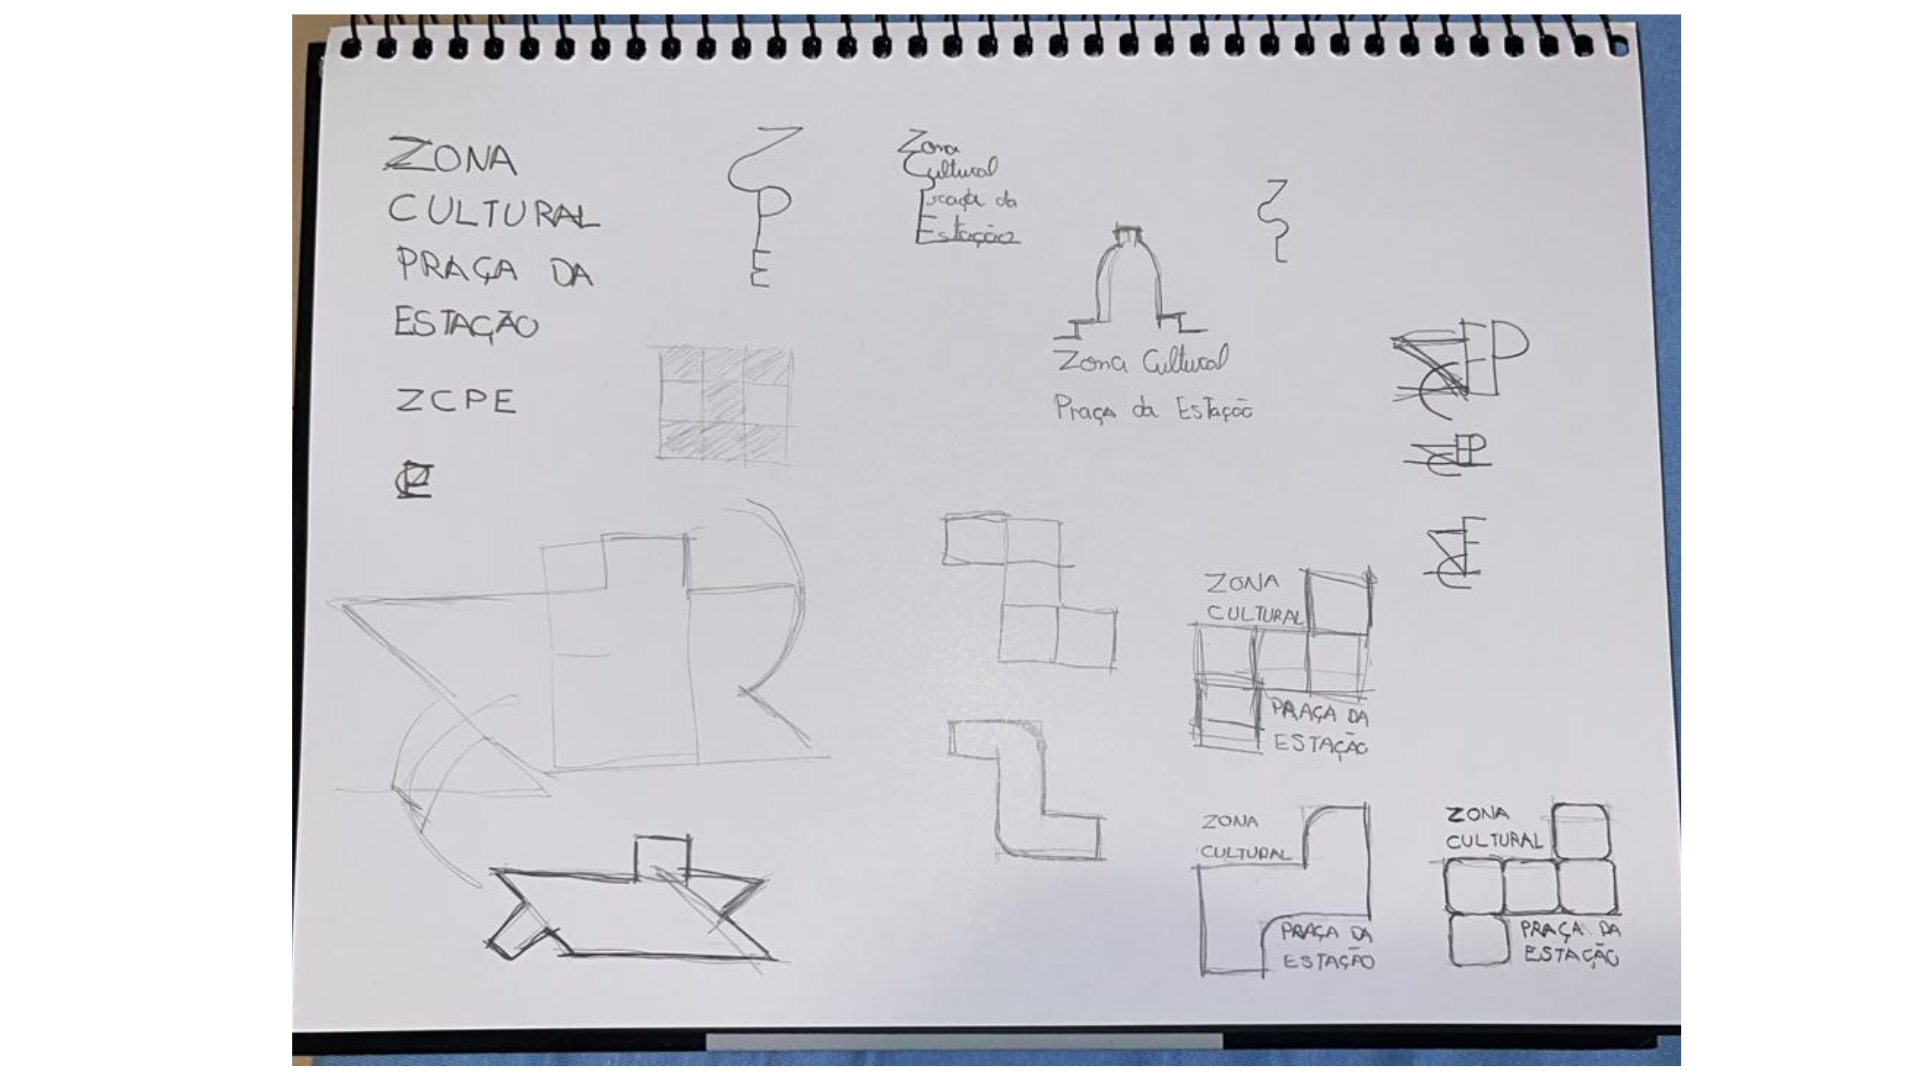 ZONA
CULTURAL
PRAÇA DA
ESTAÇÃO
ZCPE
Z
P
E
Zona
Cultural
Praça da
Estação
Zona Cultural
Praça da Estação
ZONA
CULTURAL
PRAÇA DA
ESTAÇÃO
ZONA
CULTURAL
PRAÇA DA
ESTAÇÃO
ZONA
CULTURAL
PRAÇA DA
ESTAÇÃO